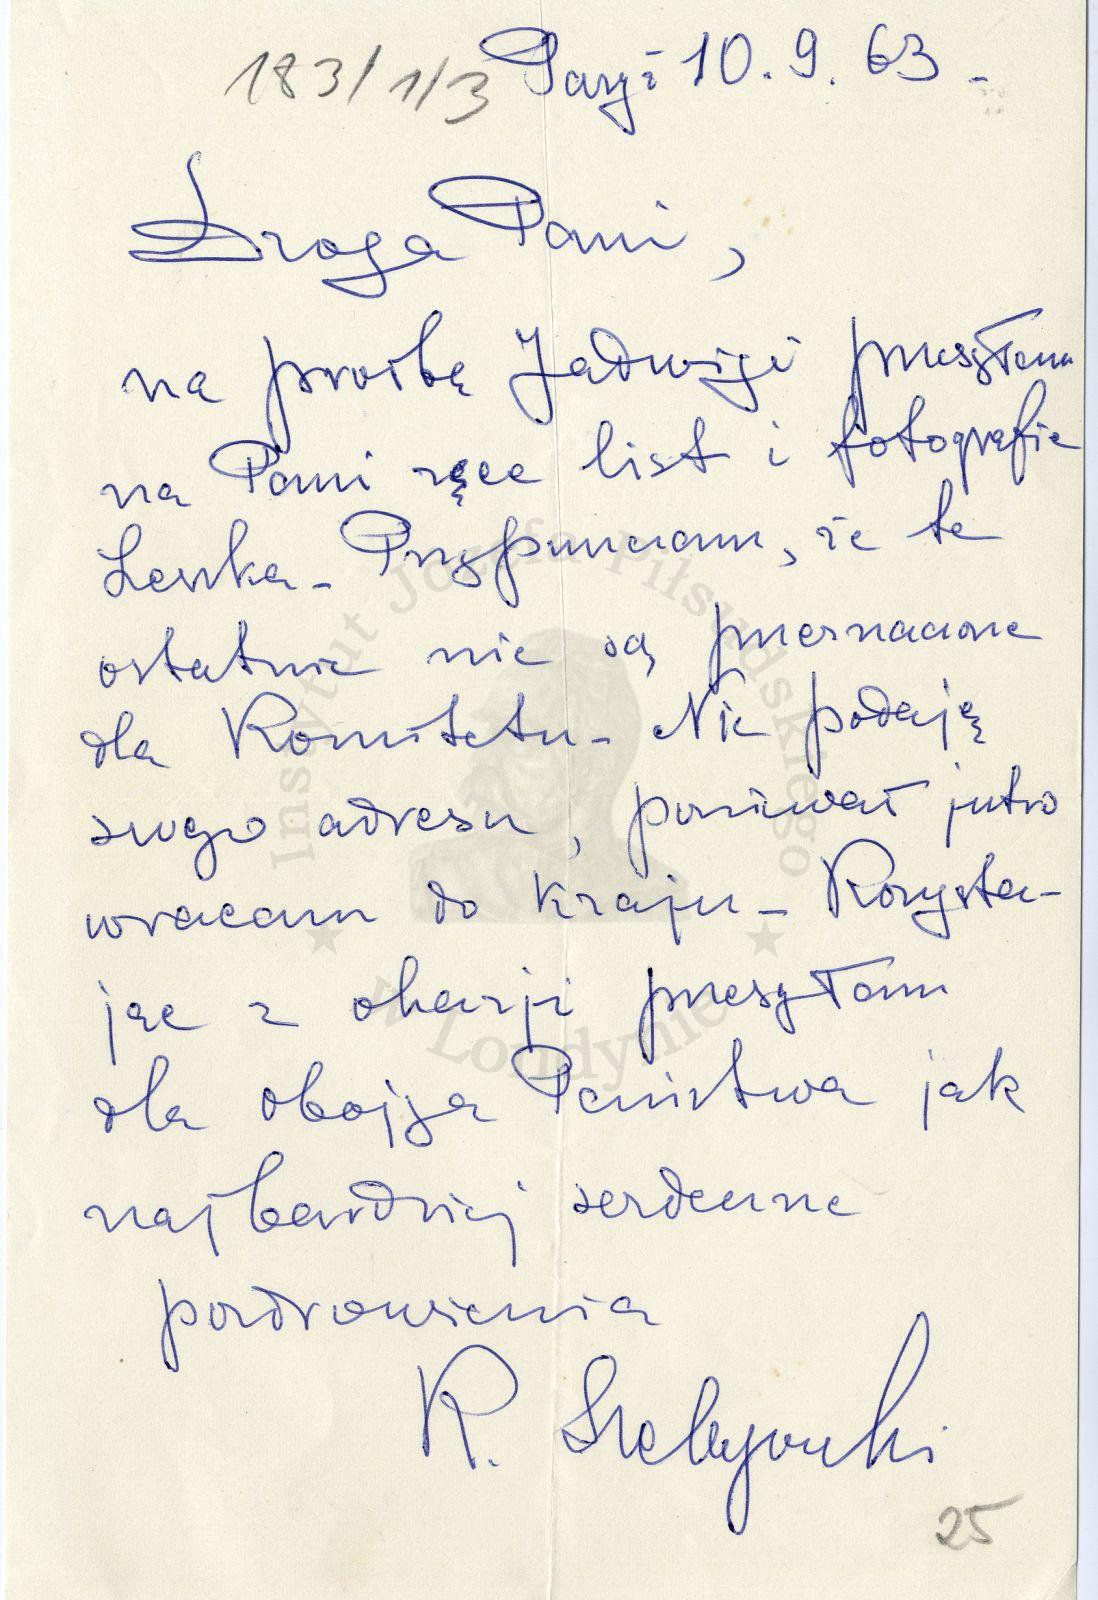 183/1/3 Paryż 10.9.63 -
Droga Pani,
na prośbę Jadwigi przesyłam
na Pani ręce list i fotografie
Leszka - Przypuszczam, że te
ostatnie nie są przeznaczone
dla Komitetu - Nie podaję
swego adresu, ponieważ jutro
wracam do Kraju - Korzysta-
jąc z okazji przesyłam
dla obojga Państwa jak
najbardziej serdeczne
pozdrowienia
R.
25
Instytut Józefa Piłsudskiego
w Londynie